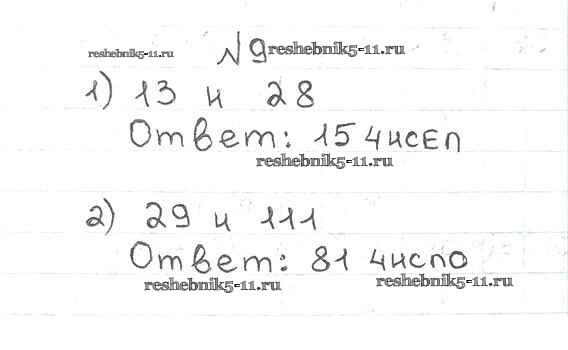 reshebnik5-11.ru №9 reshebnik5-11.ru
1) 13 и 28
Ответ: 15 чисел
reshebnik5-11.ru
2) 29 и 111
Ответ: 81 число
reshebnik5-11.ru reshebnik5-11.ru